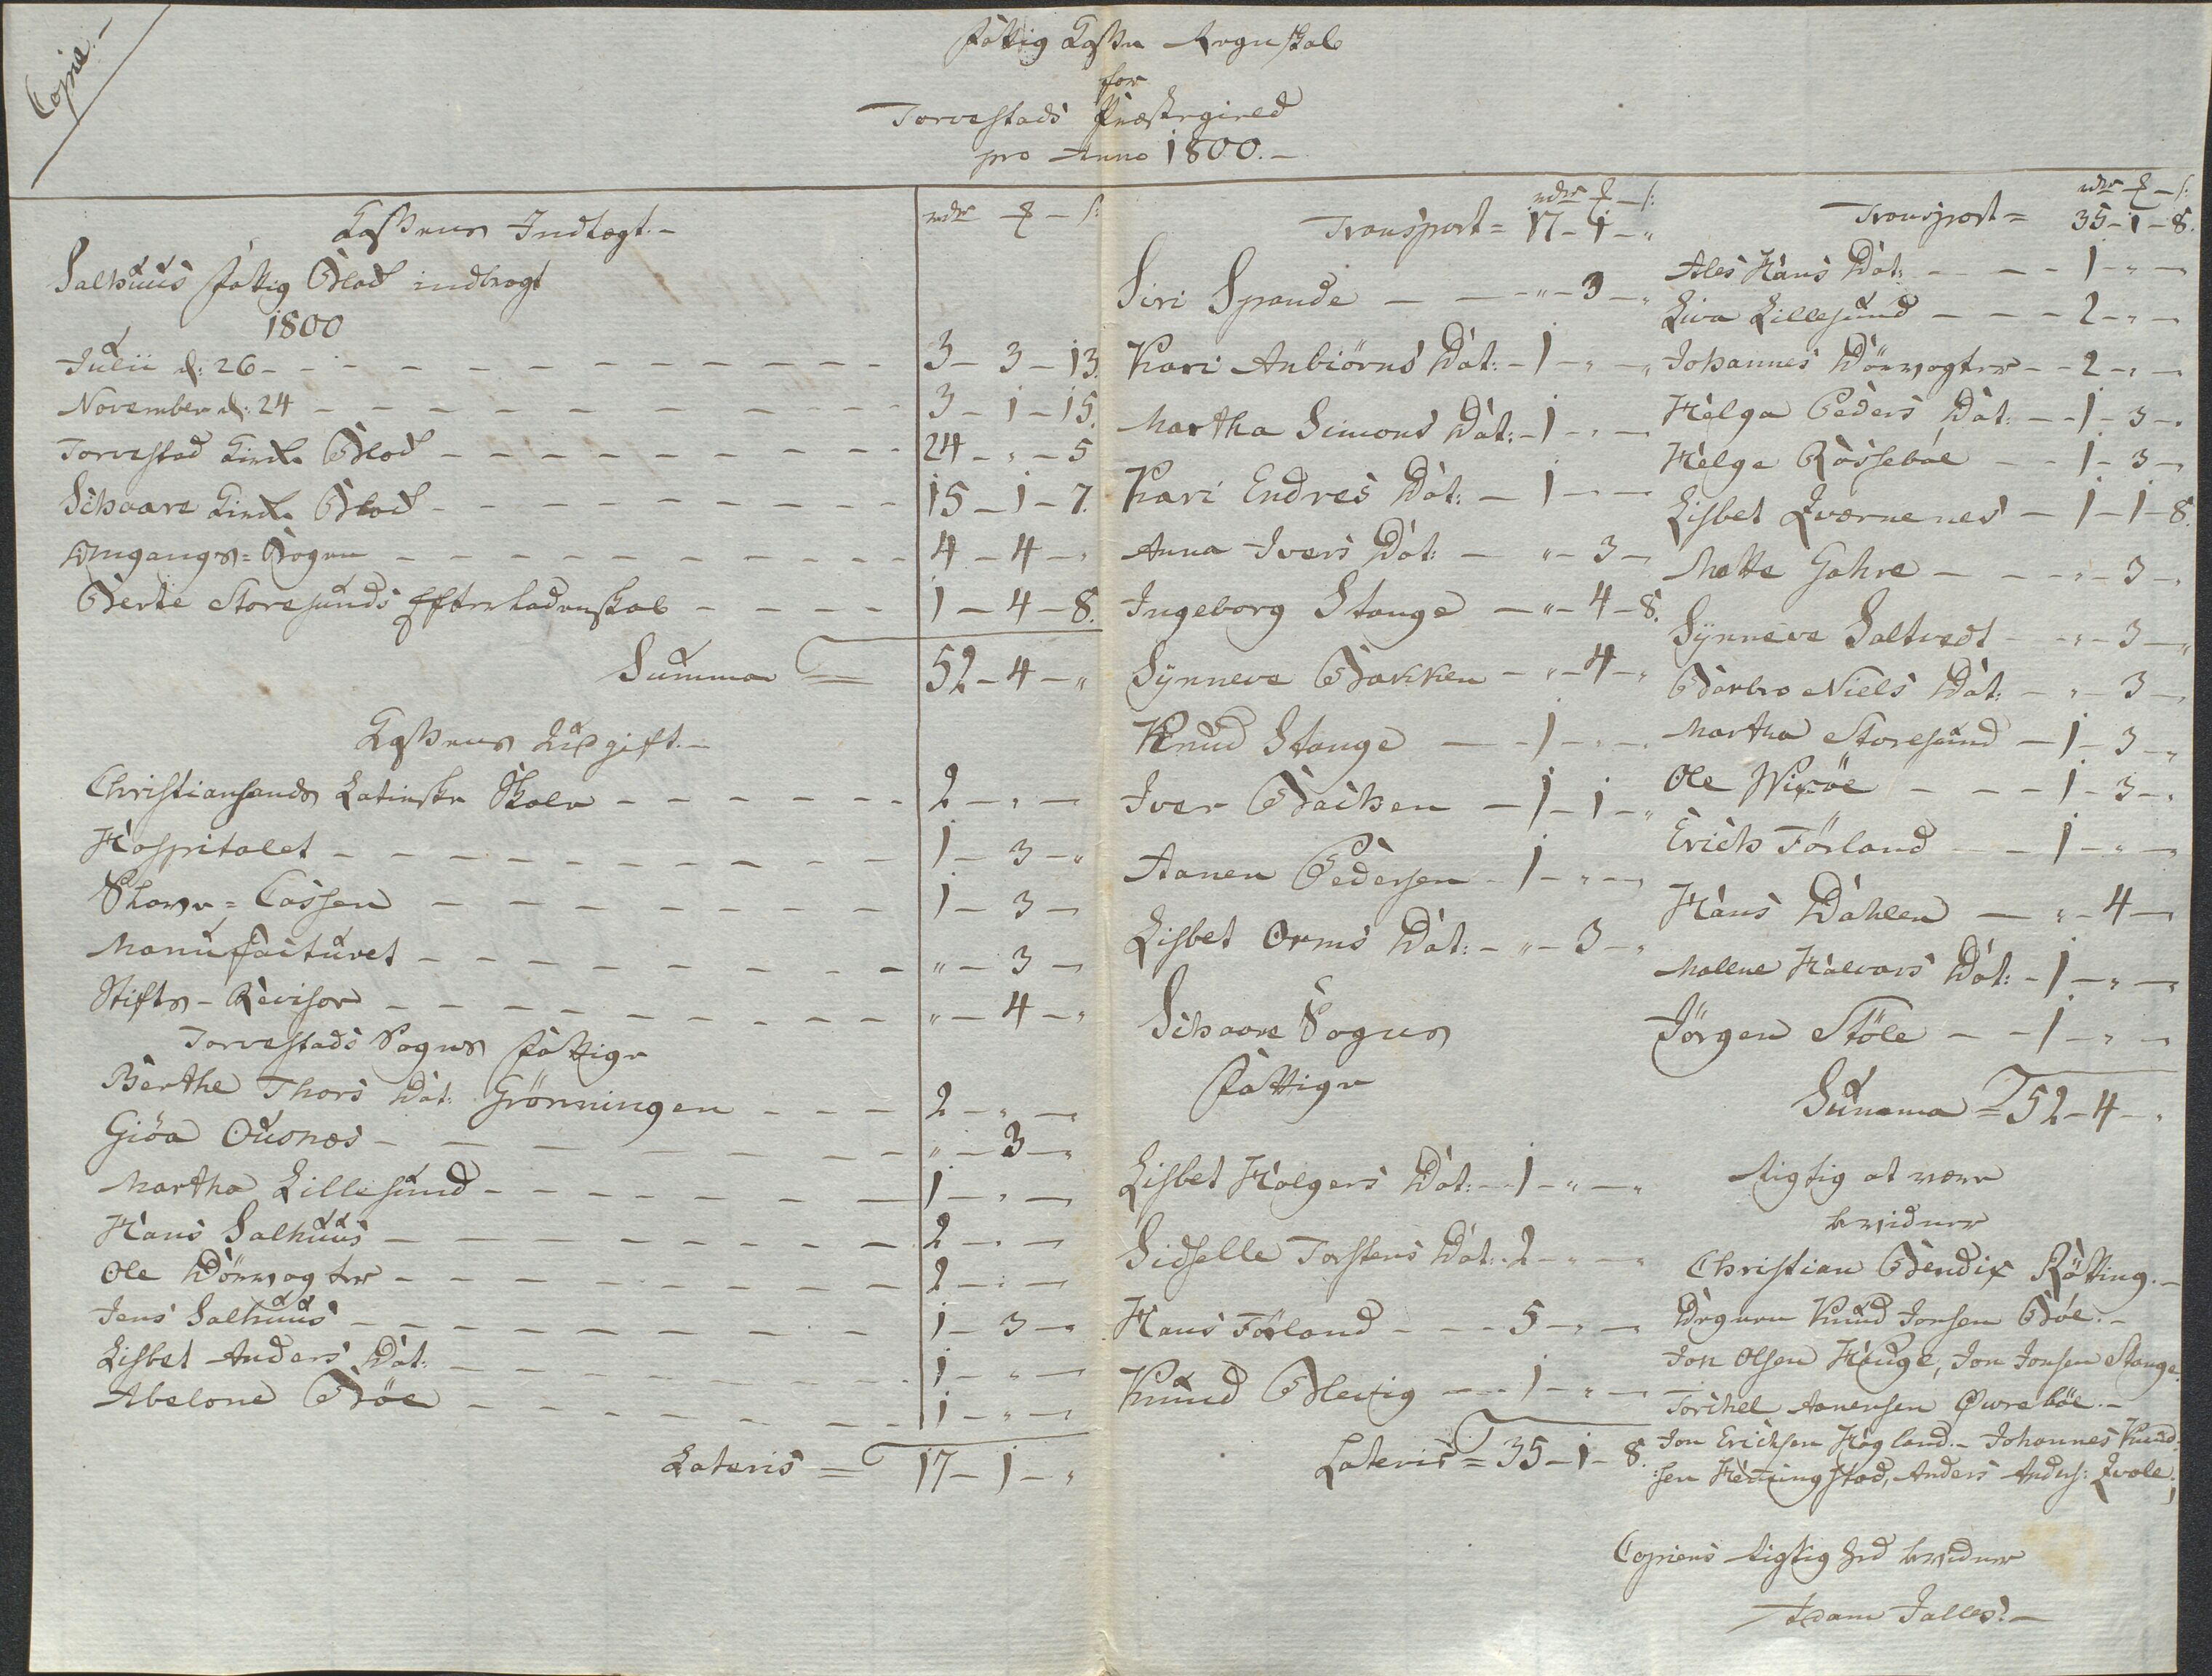 Copie.-
Fattig Cassa Regnskab
for
Torvestads Præstegield
pro Anno 1800.-
rdr ß s:
Cassens Indtægt.-
Salhuus Fattig Blok indbragt
1800
Julii d: 26 - 3 - 3 - 13.
November d: 24 - 3 - 1 - 15.
Torvestad Kirke Blok - 24 - " - 5
Schaare Kirke Blok - 15 - 1 - 7.
Omgangs-Bogen - 4 - 4 - "
Berte Storesunds Efterladenskab - 1 - 4 - 8.
Summa = 52 - 4 - "
Cassens Udgift.-
Christiansands Latinske Skole - 2 - " - "
Hospitalet - 1 - 3 - "
Skole-Cassen - 1 - 3 - "
Manufacturet - " - 3 - "
Stifts-Revisor - " - 4 - "
Torvestads Sogns Fattige
Berthe Thors Dat: Grönningen - 2 - " - "
Giöa Ousnæs - " - 3 - "
Martha Lillesund - 1 - " - "
Hans Salhuus - 2 - " - "
Ole Dörvogter - 2 - " - "
Jens Salhuus - 1 - 3 - "
Lisbet Anders Dat: - 1 - " - "
Abelone Böe - 1 - " - "
Lateris = 17 - 1 - "
rdr ß s:
Transport = 17 - 1 - "
Siri Spande - " - 3 - "
Kari Anbiörns Dat: - 1 - " - "
Martha Simons Dat: - 1 - " - "
Kari Endres Dat: - 1 - " - "
Anna Ivers Dat: - " - 3 - "
Ingeborg Stange - " - 4 - 8.
Synneve Bakken - " - 4 - "
Knud Stange - 1 - " - "
Iver Bachen - 1 - 1 - "
Aanen Pedersen - 1 - " - "
Lisbet Orms Dat: - " - 3 - "
Schaare Sogns
Fattige
Lisbet Holgers Dat: - 1 - " - "
Sidselle Torstens Dat: 2 - " - "
Hans Förland - 5 - " - "
Knud Blevig - 1 - " - "
Lateris = 35 - 1 - 8.
rdr ß s:
Transport = 35 - 1 - 8.
Ales Hans Dat: - 1 - " - "
Liva Lillesund - 2 - " - "
Johannes Dörvogter - 2 - " - "
Helga Peders Dat: - 1 - 3 - "
Helge Rosseböe - 1 - 3 - "
Lisbet Qværnenes - 1 - 1 - 8.
Mette Gahre - " - 3 - "
Synneve Saltvedt - " - 3 - "
Barbro Niels Dat: - " - 3 - "
Martha Storesund - 1 - 3 - "
Ole Wixöe - 1 - 3 - "
Erich Förland - 1 - " - "
Hans Dahlen - " - 4 - "
Mallene Halvars Dat: - 1 - " - "
Jörgen Stöle - 1 - " - "
Summa = 52 - 4 - "
Rigtig at være
bevidner
Christian Bendix Rötting.-
Degnen Knud Jonsen Böe.-
Jon Olsen Hauge, Jon Jonsen Stange.
Torchel Aanensen Qwalöe.-
Jon Ericksen Hagland.- Johannes Knud-
:sen Hemmingstad, Anders Anders: Qvale.
Copiens Rigtighed bevidner
Adam Jalles.-